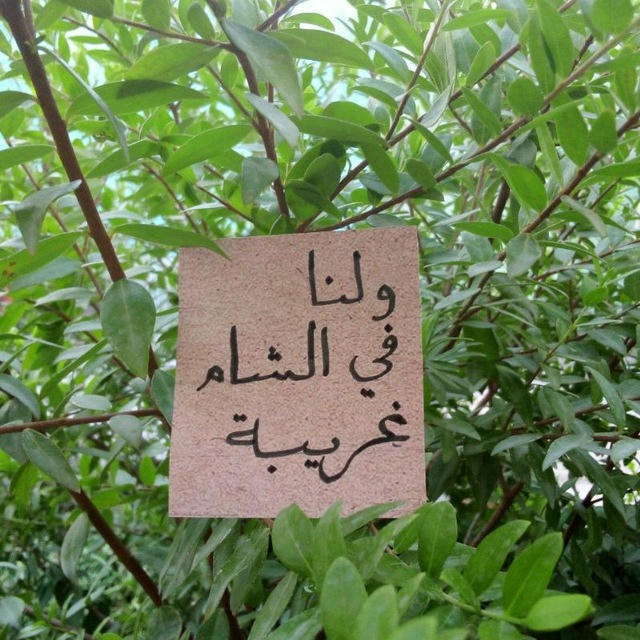 ولنا
في الشام
غريبة